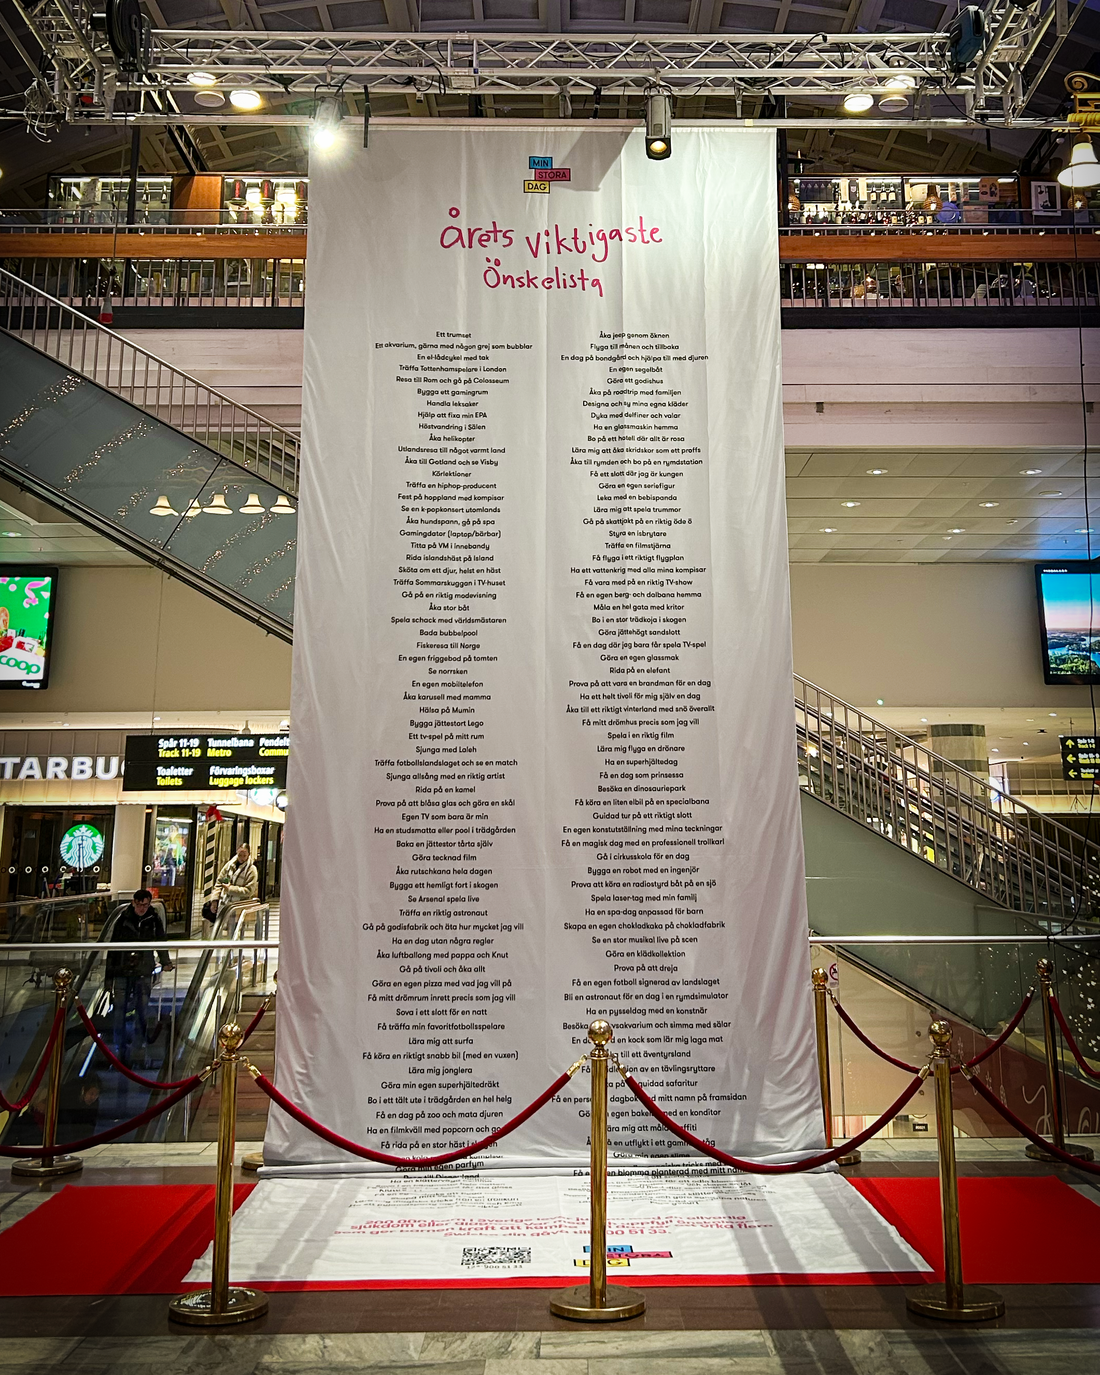 MIN
STORA
DAG
Årets viktigaste
Önskelista
Ett trumset
Ett akvarium, gärna med någon grej som bubblar
En el-lådcykel med tak
Träffa Tottenhamspelare i London
Resa till Rom och gå på Colosseum
Bygga ett gamingrum
Handla leksaker
Hjälp att fixa min EPA
Höstvandring i Sälen
Åka helikopter
Utlandsresa till något varmt land
Åka till Gotland och se Visby
Körlektioner
Träffa en hiphop-producent
Fest på hoppland med kompisar
Se en k-popkonsert utomlands
Åka hundspann, gå på spa
Gamingdator (laptop/bärbar)
Titta på VM i innebandy
Rida islandshäst på Island
Sköta om ett djur, helst en häst
Träffa Sommarskuggan i TV-huset
Gå på en riktig modevisning
Åka stor båt
Spela schack med världsmästaren
Bada bubbelpool
Fiskeresa till Norge
En egen friggebod på tomten
Se norrsken
En egen mobiltelefon
Åka karusell med mamma
Hälsa på Mumin
Bygga jättestort Lego
Ett tv-spel på mitt rum
Sjunga med Laleh
Träffa fotbollslandslaget och se en match
Sjunga allsång med en riktig artist
Rida på en kamel
Prova på att blåsa glas och göra en skål
Egen TV som bara är min
Ha en studsmatta eller pool i trädgården
Baka en jättestor tårta själv
Göra tecknad film
Åka rutschkana hela dagen
Bygga ett hemligt fort i skogen
Se Arsenal spela live
Träffa en riktig astronaut
Gå på godisfabrik och äta hur mycket jag vill
Ha en dag utan några regler
Åka luftballong med pappa och Knut
Gå på tivoli och åka allt
Göra en egen pizza med vad jag vill på
Få mitt drömrum inrett precis som jag vill
Sova i ett slott för en natt
Få träffa min favoritfotbollsspelare
Lära mig att surfa
Få köra en riktigt snabb bil (med en vuxen)
Lära mig jonglera
Göra min egen superhjältedräkt
Bo i ett tält ute i trädgården en hel helg
Få en dag på zoo och mata djuren
Ha en filmkväll med popcorn och
Få rida på en stor häst i
Göra min egen parfym
Åka jeep genom öknen
Flyga till månen och tillbaka
En dag på bondgård och hjälpa till med djuren
En egen segelbåt
Göra ett godishus
Åka på roadtrip med familjen
Designa och sy mina egna kläder
Dyka med delfiner och valar
Ha en glassmaskin hemma
Bo på ett hotell där allt är rosa
Lära mig att åka skridskor som ett proffs
Åka till rymden och bo på en rymdstation
Få ett slott där jag är kungen
Göra en egen seriefigur
Leka med en bebispanda
Lära mig att spela trummor
Gå på skattjakt på en riktig öde ö
Styra en isbrytare
Träffa en filmstjärna
Få flyga i ett riktigt flygplan
Ha ett vattenkrig med alla mina kompisar
Få vara med på en riktig TV-show
Få en egen berg- och dalbana hemma
Måla en hel gata med kritor
Bo i en stor trädkoja i skogen
Göra jättehögt sandslott
Få en dag där jag bara får spela TV-spel
Göra en egen glassmak
Rida på en elefant
Prova på att vara en brandman för en dag
Ha ett helt tivoli för mig själv en dag
Åka till ett riktigt vinterland med snö överallt
Få mitt drömhus precis som jag vill
Spela i en riktig film
Lära mig flyga en drönare
Ha en superhjältedag
Få en dag som prinsessa
Besöka en dinosauriepark
Få köra en liten elbil på en specialbana
Guidad tur på ett riktigt slott
En egen konstutställning med mina teckningar
Få en magisk dag med en professionell trollkarl
Gå i cirkusskola för en dag
Bygga en robot med en ingenjör
Prova att köra en radiostyrd båt på en sjö
Spela laser-tag med min familj
Ha en spa-dag anpassad för barn
Skapa en egen chokladkaka på chokladfabrik
Se en stor musikal live på scen
Göra en klädkollektion
Prova på att dreja
Få en egen fotboll signerad av landslaget
Bli en astronaut för en dag i en rymdsimulator
Ha en pysseldag med en konstnär
Besöka och simma med sälar
en kock som lär mig laga mat
till ett äventyrsland
av en tävlingsryttare
på guidad safaritur
Få en dagbok med mitt namn på framsidan
egen med en konditor
Lära mig att måla graffiti
en utflykt i ett tåg
Få en egen blomma planterad med mitt
Spår 11-19 Tunnelbana
Track 11-19 Metro
Toaletter Förvaringsboxar
Toilets Luggage lockers
TARBU
coop